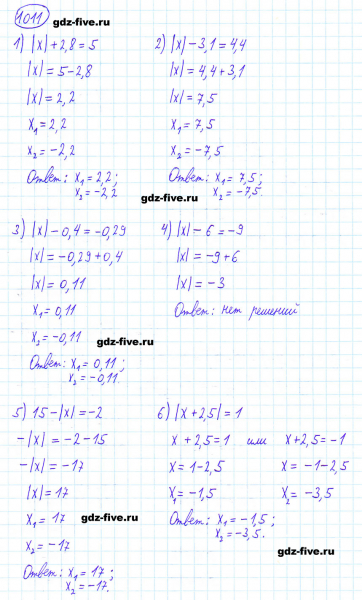 1011
gdz-five.ru
1) |x| + 2,8 = 5
|x| = 5 - 2,8
|x| = 2,2
x₁ = 2,2
x₂ = -2,2
Ответ: x₁ = 2,2;
x₂ = -2,2
2) |x| - 3,1 = 4,4
|x| = 4,4 + 3,1
|x| = 7,5
x₁ = 7,5
x₂ = -7,5
Ответ: x₁ = 7,5;
x₂ = -7,5.
gdz-five.ru
gdz-five.ru
3) |x| - 0,4 = -0,29
|x| = -0,29 + 0,4
|x| = 0,11
x₁ = 0,11
x₂ = -0,11
gdz-five.ru
Ответ: x₁ = 0,11;
x₂ = -0,11.
4) |x| - 6 = -9
|x| = -9 + 6
|x| = -3
Ответ: нет решений
5) 15 - |x| = -2
-|x| = -2 - 15
-|x| = -17
|x| = 17
x₁ = 17
gdz-five.ru
x₂ = -17
Ответ: x₁ = 17;
x₂ = -17.
6) |x + 2,5| = 1
x + 2,5 = 1 или x + 2,5 = -1
x = 1 - 2,5 x = -1 - 2,5
x₁ = -1,5 x₂ = -3,5
Ответ: x₁ = -1,5;
x₂ = -3,5.
gdz-five.ru